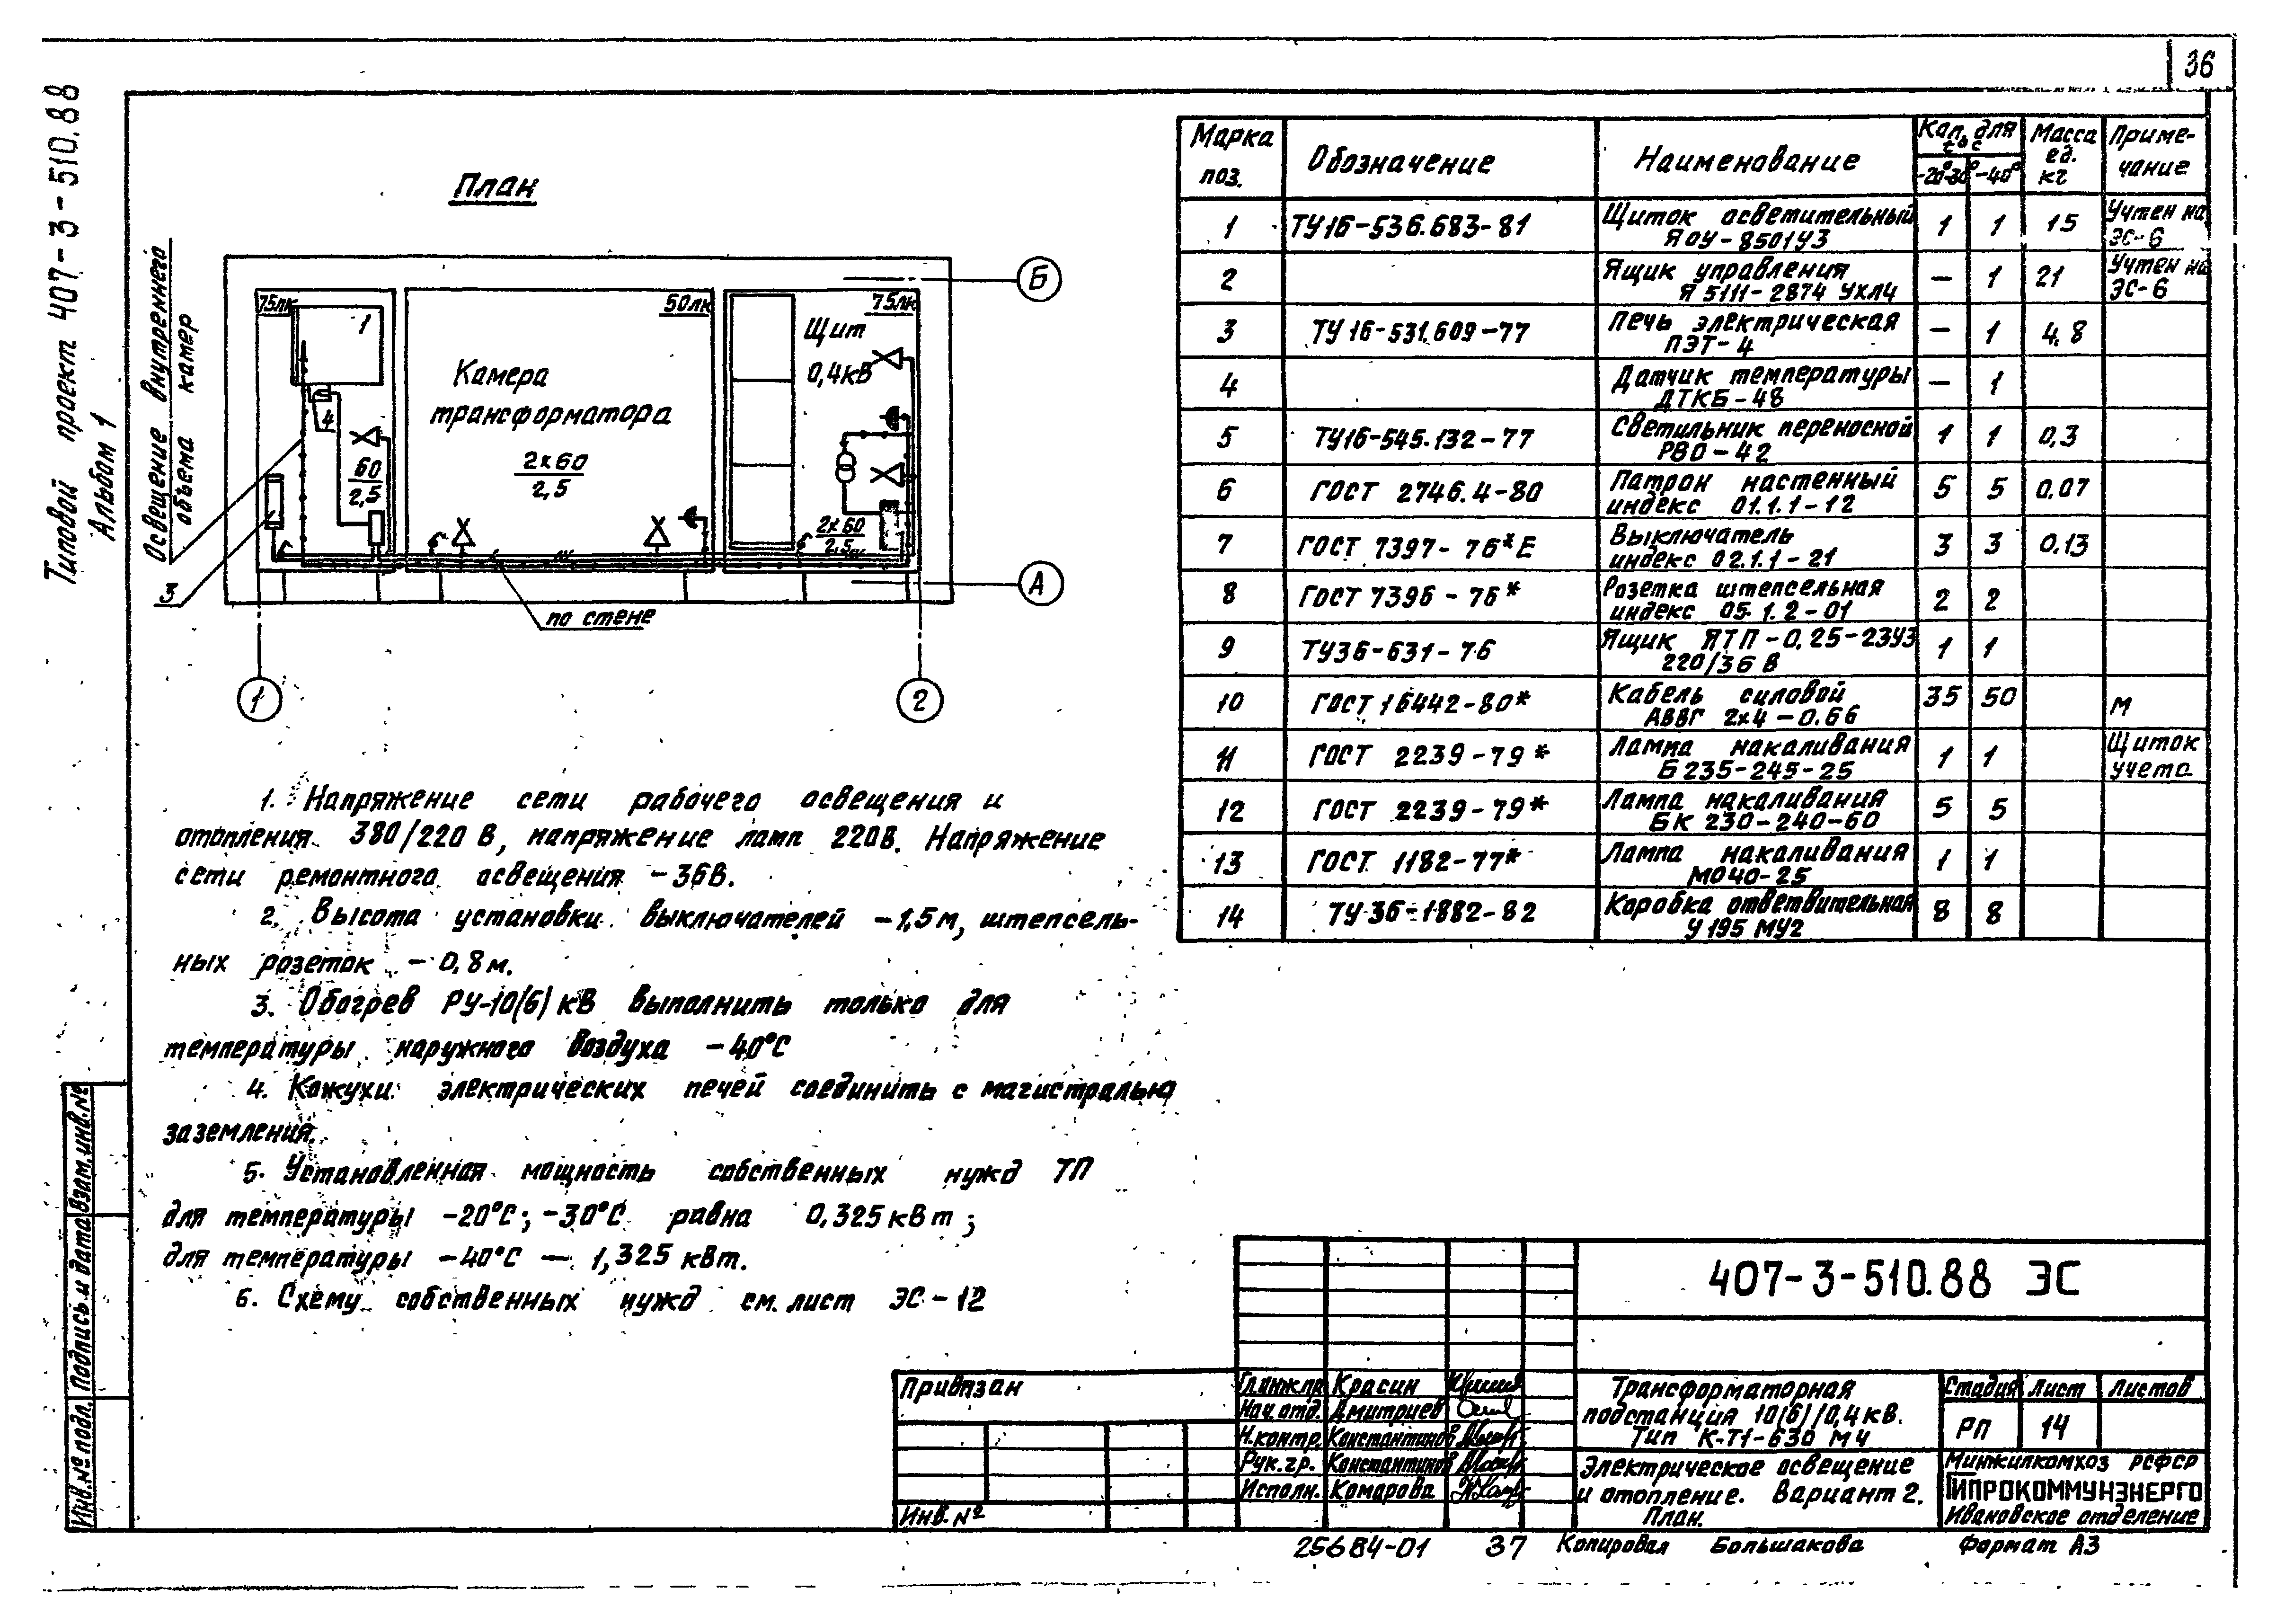 36
Типовой проект 407-3-510.88
Альбом 1
Освещение внутреннего
объема камер
План
75лк
1
4
60
2,5
3
Камера
трансформатора
2х60
2,5
50лк
75лк
Щит
0,4кВ
2х60
2,5
по стене
Б
А
1
2
Марка поз. Обозначение Наименование Кол. для t°с Масса ед. кг Приме-чание
-20°-30° -40°
1 ТУ16-536.683-81 Щиток осветительный 1 1 15 Учтен на
ЯОУ-8501У3 ЭС-6
2 Ящик управления — 1 21 Учтен на
Я 5111-2874 УХЛ4 ЭС-6
3 ТУ 16-531.609-77 Печь электрическая — 1 4.8
ПЭТ-4
4 Датчик температуры — 1
ДТКБ-48
5 ТУ16-545.132-77 Светильник переносной 1 1 0,3
РВО-42
6 ГОСТ 2746.4-80 Патрон настенный 5 5 0.07
индекс 01.1.1-12
7 ГОСТ 7397-76*Е Выключатель 3 3 0.13
индекс 02.1.1-21
8 ГОСТ 7396-76* Розетка штепсельная 2 2
индекс 05.1.2-01
9 ТУ36-631-76 Ящик ЯТП-0,25-23У3 1 1
220/36 В
10 ГОСТ 16442-80* Кабель силовой 35 50 м
АВВГ 2х4-0.66
11 ГОСТ 2239-79* Лампа накаливания 1 1 Щиток
Б 235-245-25 учета
12 ГОСТ 2239-79* Лампа накаливания 5 5
БК 230-240-60
13 ГОСТ 1182-77* Лампа накаливания 1 1
МО40-25
14 ТУ 36-1882-82 Коробка ответвительная 8 8
У 195 МУ2
1. Напряжение сети рабочего освещения и
отопления 380/220 В, напряжение ламп 220В. Напряжение
сети ремонтного освещения -36В.
2. Высота установки выключателей -1,5м, штепсель-
ных розеток - 0,8м.
3. Обогрев РУ-10(6) кВ выполнить только для
температуры наружного воздуха -40°С
4. Кожухи электрических печей соединить с магистралью
заземления.
5. Установленная мощность собственных нужд ТП
для температуры -20°С; -30°С равна 0,325кВт;
для температуры -40°С — 1,325 кВт.
6. Схему собственных нужд см. лист ЭС-12
Инв.№ подл. Подпись и дата Взам.инв.№
Привязан
Инв.№
407-3-510.88 ЭС
Гл.инж.пр Красин
Нач.отд. Дмитриев
Н.контр. Константинов
Рук.гр. Константинов
Исполн. Комарова
Трансформаторная
подстанция 10(6)/0,4кВ.
Тип К-Т1-630 М4
Стадия Лист Листов
РП 14
Электрическое освещение
и отопление. Вариант 2.
План.
Минжилкомхоз РСФСР
ГИПРОКОММУНЭНЕРГО
Ивановское отделение
25684-01 37 Копировал Большакова Формат А3